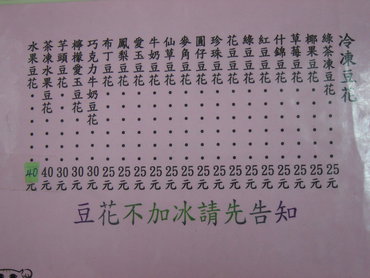 冷凍豆花
綠茶凍豆花‧‧‧‧25元
椰果豆花‧‧‧‧‧25元
草莓豆花‧‧‧‧‧25元
什錦豆花‧‧‧‧‧25元
紅豆豆花‧‧‧‧‧25元
綠豆豆花‧‧‧‧‧25元
花豆豆花‧‧‧‧‧25元
珍珠豆花‧‧‧‧‧25元
圓仔豆花‧‧‧‧‧25元
麥角豆花‧‧‧‧‧25元
仙草豆花‧‧‧‧‧25元
牛奶豆花‧‧‧‧‧25元
愛玉豆花‧‧‧‧‧25元
鳳梨豆花‧‧‧‧‧25元
布丁豆花‧‧‧‧‧25元
巧克力牛奶豆花‧‧30元
檸檬愛玉豆花‧‧‧30元
芋頭豆花‧‧‧‧‧30元
茶凍水果豆花‧‧‧40元
水果豆花‧‧‧‧‧40元
豆花不加冰請先告知